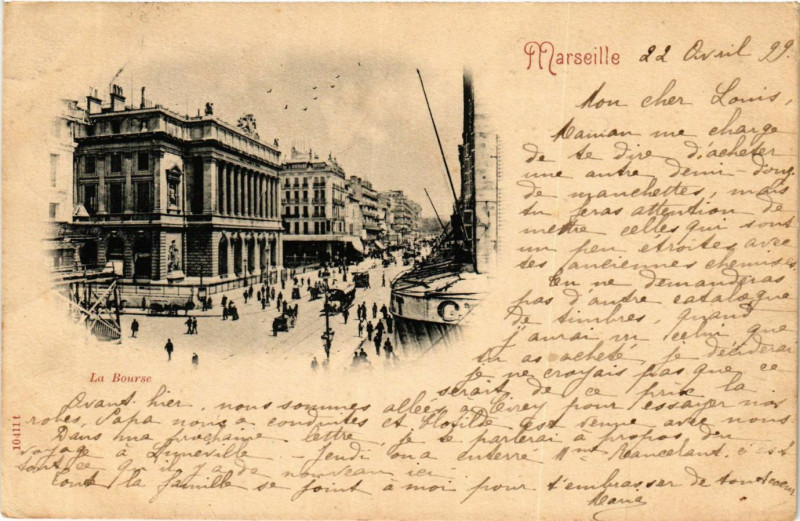 Marseille 22 Avril 99.
Mon cher Louis,
Maman me charge
de te dire d'acheter
une autre demi-douz.
de manchettes, mais
tu feras attention de
mettre celles qui sont
un peu etroites avec
tes anciennes chemises.
Tu ne demanderas
pas d'autre catalogue
de timbres, quand
j'aurai vu celui que
tu as acheté, je déciderai
je ne croyais pas que ce
serait de ce prix la
La Bourse
Avant-hier, nous sommes allées à Cirey pour essayer nos
robes, Papa nous a conduites et est venue avec nous
Dans ma prochaine lettre, je te parlerai à propos du
voyage à Lunéville - Jeudi on a enterré Mme c'est
tout ce qu'il y a de nouveau ici.
Toute la famille se joint à moi pour t'embrasser de tout cœur
Maria
10411 t